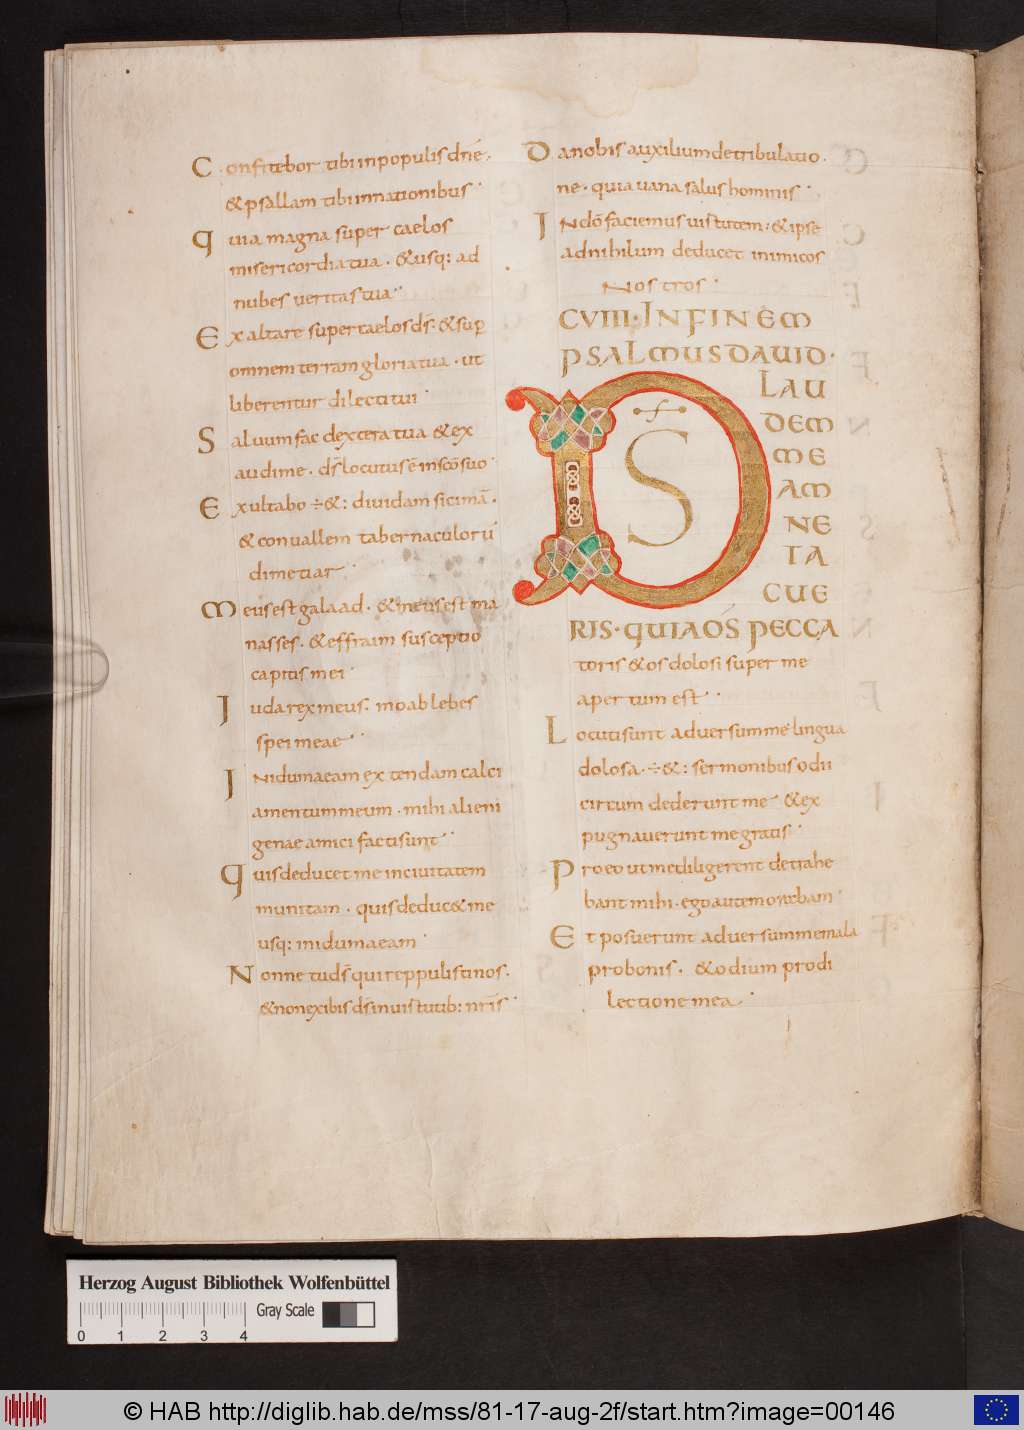 Confitebor tibi in populis dnē.
& psallam tibi in nationibus
Quia magna super caelos
misericordia tua. & usq: ad
nubes veritas tua
Exaltare super caelos ds̄. & sup̄
omnem terram gloria tua. ut
liberentur dilecti tui
Saluum fac dextera tua & ex
audi me. ds̄ locutus ē in scō suo
Exultabo ÷ &: diuidam sicimā.
& conuallem tabernaculorū
dimetiar
Meus est galaad. & meus est ma
nasses. & effraim susceptio
capitis mei
Iuda rex meus. moab lebes
spei meae
In idumaeam extendam calci
amentum meum. mihi alieni
genae amici facti sunt
Quis deducet me in ciuitatem
munitam. quis deduc& me
usq: in idumaeam
Nonne tu ds̄ qui reppulisti nos.
& non exibis ds̄ in uirtutib: nr̄is
Da nobis auxilium de tribulatio.
ne. quia uana salus hominis
In dō faciemus uirtutem: & ipse
ad nihilum deducet inimicos
Nostros
CVIII. IN FINEM
PSALMUS DAUID.
DS̄ LAU
DEM
ME
AM
NE
TA
CUE
RIS. QUIA ÓS PECCA
toris & os dolosi super me
apertum est
Locuti sunt aduersum me lingua
dolosa. ÷ &: sermonibus odii
circum dederunt me & ex
pugnauerunt me gratis
Pro eo ut me diligerent detrahe
bant mihi. ego autem orabam
Et posuerunt aduersum me mala
pro bonis. & odium pro di
lectione mea.
Herzog August Bibliothek Wolfenbüttel
Gray Scale
0 1 2 3 4
© HAB http://diglib.hab.de/mss/81-17-aug-2f/start.htm?image=00146